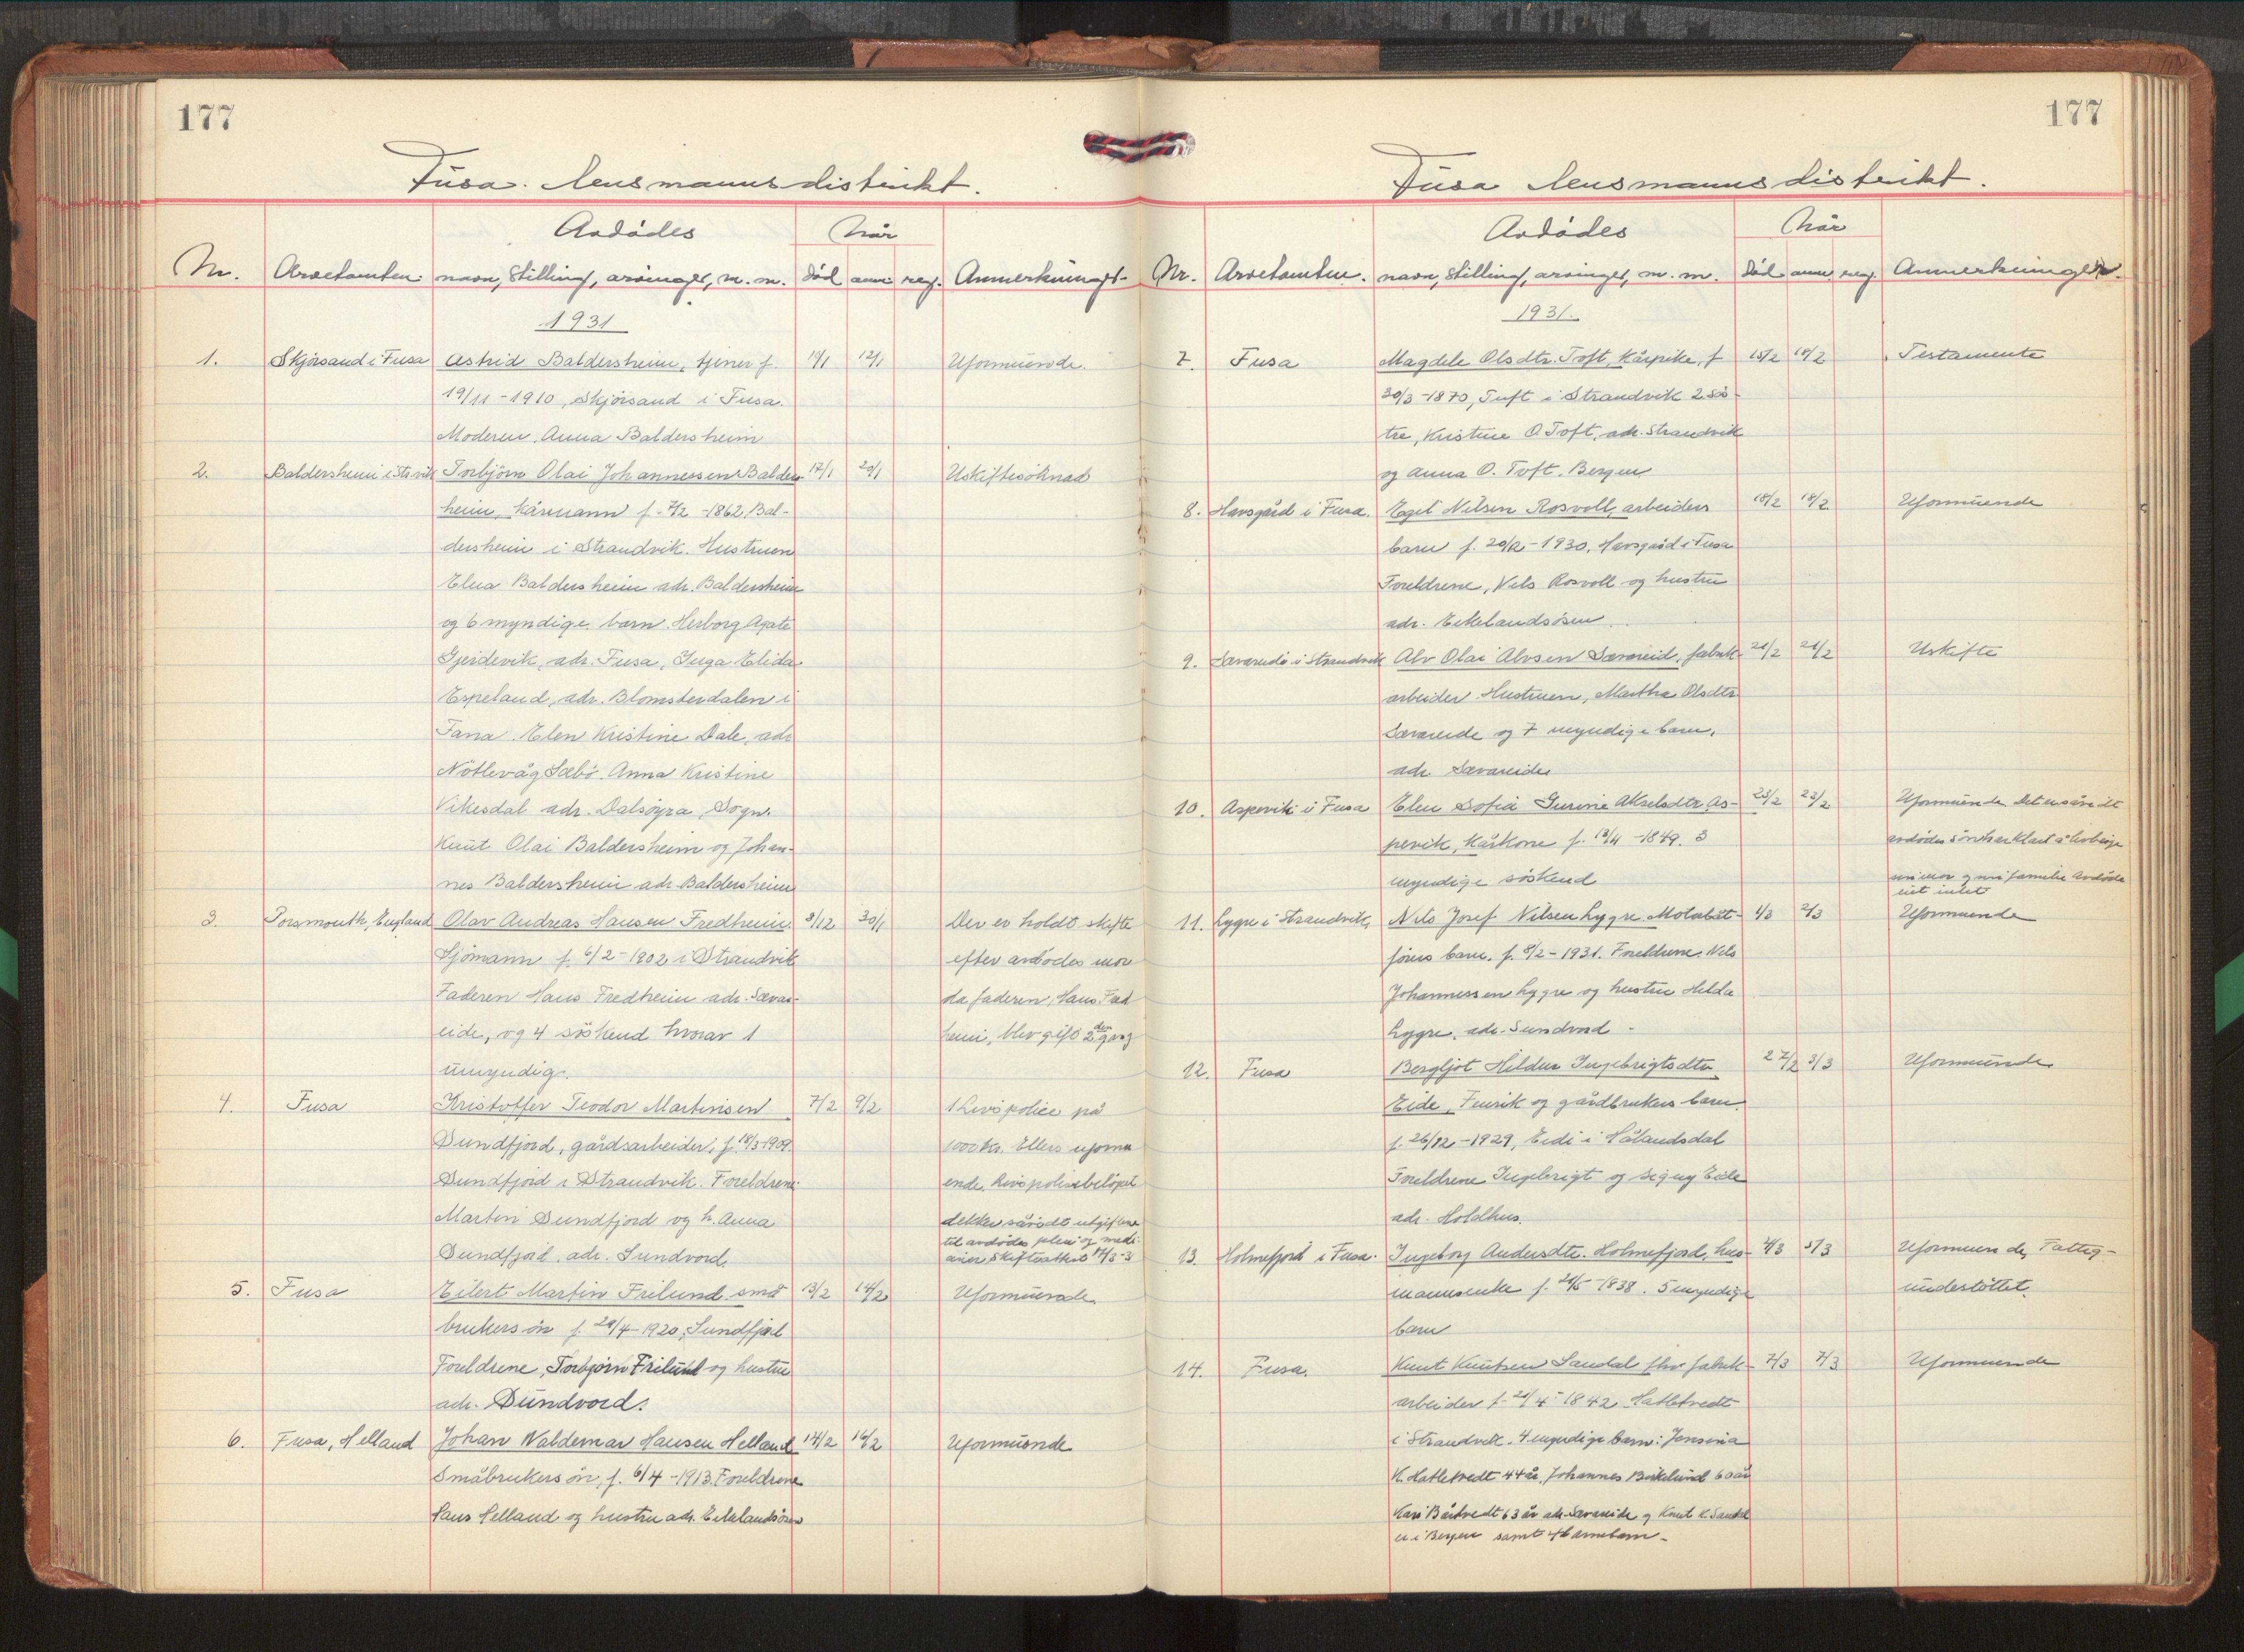 177
Fusa. lensmannsdistrikt.
Nr. Arvetomten. Avdødes navn, stilling, arvinger, m. m. Når død anm. reg. Anmerkninger
1931
1. Skjørsand i Fusa Astrid Baldersheim, tjener f. 10/1 12/1 Uformuende.
19/11-1910, Skjørsand i Fusa.
Moderen, Anna Baldersheim
2. Baldersheim i Str.vik Torbjørn Olai Johannessen Balders- 17/1 20/1 Uskiftesøknad
heim, kårmann f. 7/2-1862, Bal-
dersheim i Strandvik. Hustruen
Elna Baldersheim adr. Baldersheim
og 6 myndige barn. Herborg Agate
Gjerdevik, adr. Fusa, Inga Elida
Espeland, adr. Blomsterdalen i
Fana. Elen Kristine Dale, adr
Nötlevåg Sæbö Anna Kristine
Vikesdal adr. Dalsøyra, Sogn.
Knut Olai Baldersheim og Johan-
nes Baldersheim adr. Baldersheim
3. Porsmouth, England Olav Andreas Hansen Fredheim. 8/12 30/1 Der er holdt skifte
Sjömann f. 6/2-1902 i Strandvik efter avdødes mor
Faderen Hans Fredheim adr. Sævar- da faderen, Hans Fred
eide, og 4 søskend hvorav 1 heim, blev gift 2den gang
umyndig.
4. Fusa Kristoffer Teodor Martinsen 7/2 9/2 1 Livspolice på
Sundfjord, gårdsarbeider, f. 18/3-1909. 1000 kr. Ellers uformu
Sundfjord i Strandvik. Foreldrene ende. Livspolisebeløpet
Martin Sundfjord og h. Anna dekker såvidt utgiftene
Sundfjord, adr. Sundvord. til avdødes pleie og medi-
sin Skifteattest 14/3-31
5. Fusa Eilert Martin Frilund små 13/2 14/2 Uformuende.
brukersøn f. 29/4-1920, Sundfjord
Foreldrene, Torbjørn Frilund og hustru
adr. Sundvord.
6. Fusa, Helland Johan Waldemar Hansen Helland 14/2 16/2 Uformuende
Småbrukersøn, f. 6/4-1913. Foreldrene
Hans Helland og hustru adr. Eikelandsösen
177
Fusa lensmannsdistrikt.
Nr. Arvetomten. Avdødes navn, stilling, arvinger, m. m. Når død anm. reg. Anmerkninger.
1931.
7. Fusa Magdele Olsdtr. Toft, Kårpike, f 15/2 18/2 Testamente
30/3-1870, Tuft i Strandvik 2 sö-
tre, Kristine O. Toft, adr. Strandvik
og Anna O. Toft. Bergen
8. Havsgård i Fusa. Egil Nilsen Rosvoll, arbeiders 18/2 18/2 Uformuende
barn f. 20/12-1930, Havsgård i Fusa
Foreldrene, Nels Rosvoll og hustru
adr. Eikelandsösen
9. Sævareide i Strandvik Alv Olai Alvsen Sævareid, fabrik- 20/2 21/2 Uskifte
arbeider. Hustruen, Martha Olsdtr
Sævareide og 7 myndige barn.
adr. Sævareide
10. Aspevik i Fusa Elen Sofia Gurine Akselsdtr. As- 23/2 23/2 Uformuende det er såvidt
pevik, Kårkone f. 13/4-1849. 3 avdødes sön har klart å livberge
myndige søskend sin mor og sin familie Avdøde
eiet intet
11. Lygre i Strandvik, Nils Josef Nilsen Lygre. Motorbåt- 1/3 2/3 Uformuende
förers barn. f. 8/2-1931. Foreldrene, Nels
Johannessen Lygre og hustru Hilda
Lygre, adr. Sundvord -
12. Fusa Bergljot Hildur Ingebrigtsdtr 27/2 3/3 Uformuende.
Eide, Fenrik og gårdbrukers barn.
f. 26/12-1929, Eide i Hålandsdal
Foreldrene Ingebrigt og Signy Eide
adr. Holdhus.
13. Holmefjord i Fusa. Ingeborg Andersdtr. Holmefjord, hus- 4/3 5/3 Uformuende, Fattig-
mannsenke f. 24/5-1838. 5 myndige understöttet.
barn
14. Fusa. Knut Knutsen Sandal fhv. fabrik- 7/3 7/3 Uformuende
arbeider f. 21/4-1842 Hatletvedt
i Strandvik. 4 myndige barn: Jensina
K. Hatletvedt 44 år, Johannes Birkelund 60 år
Kari Båtvedt 63 år adr. Sævareide og Knut K. Sandal
er i Bergen samt barnebarn -